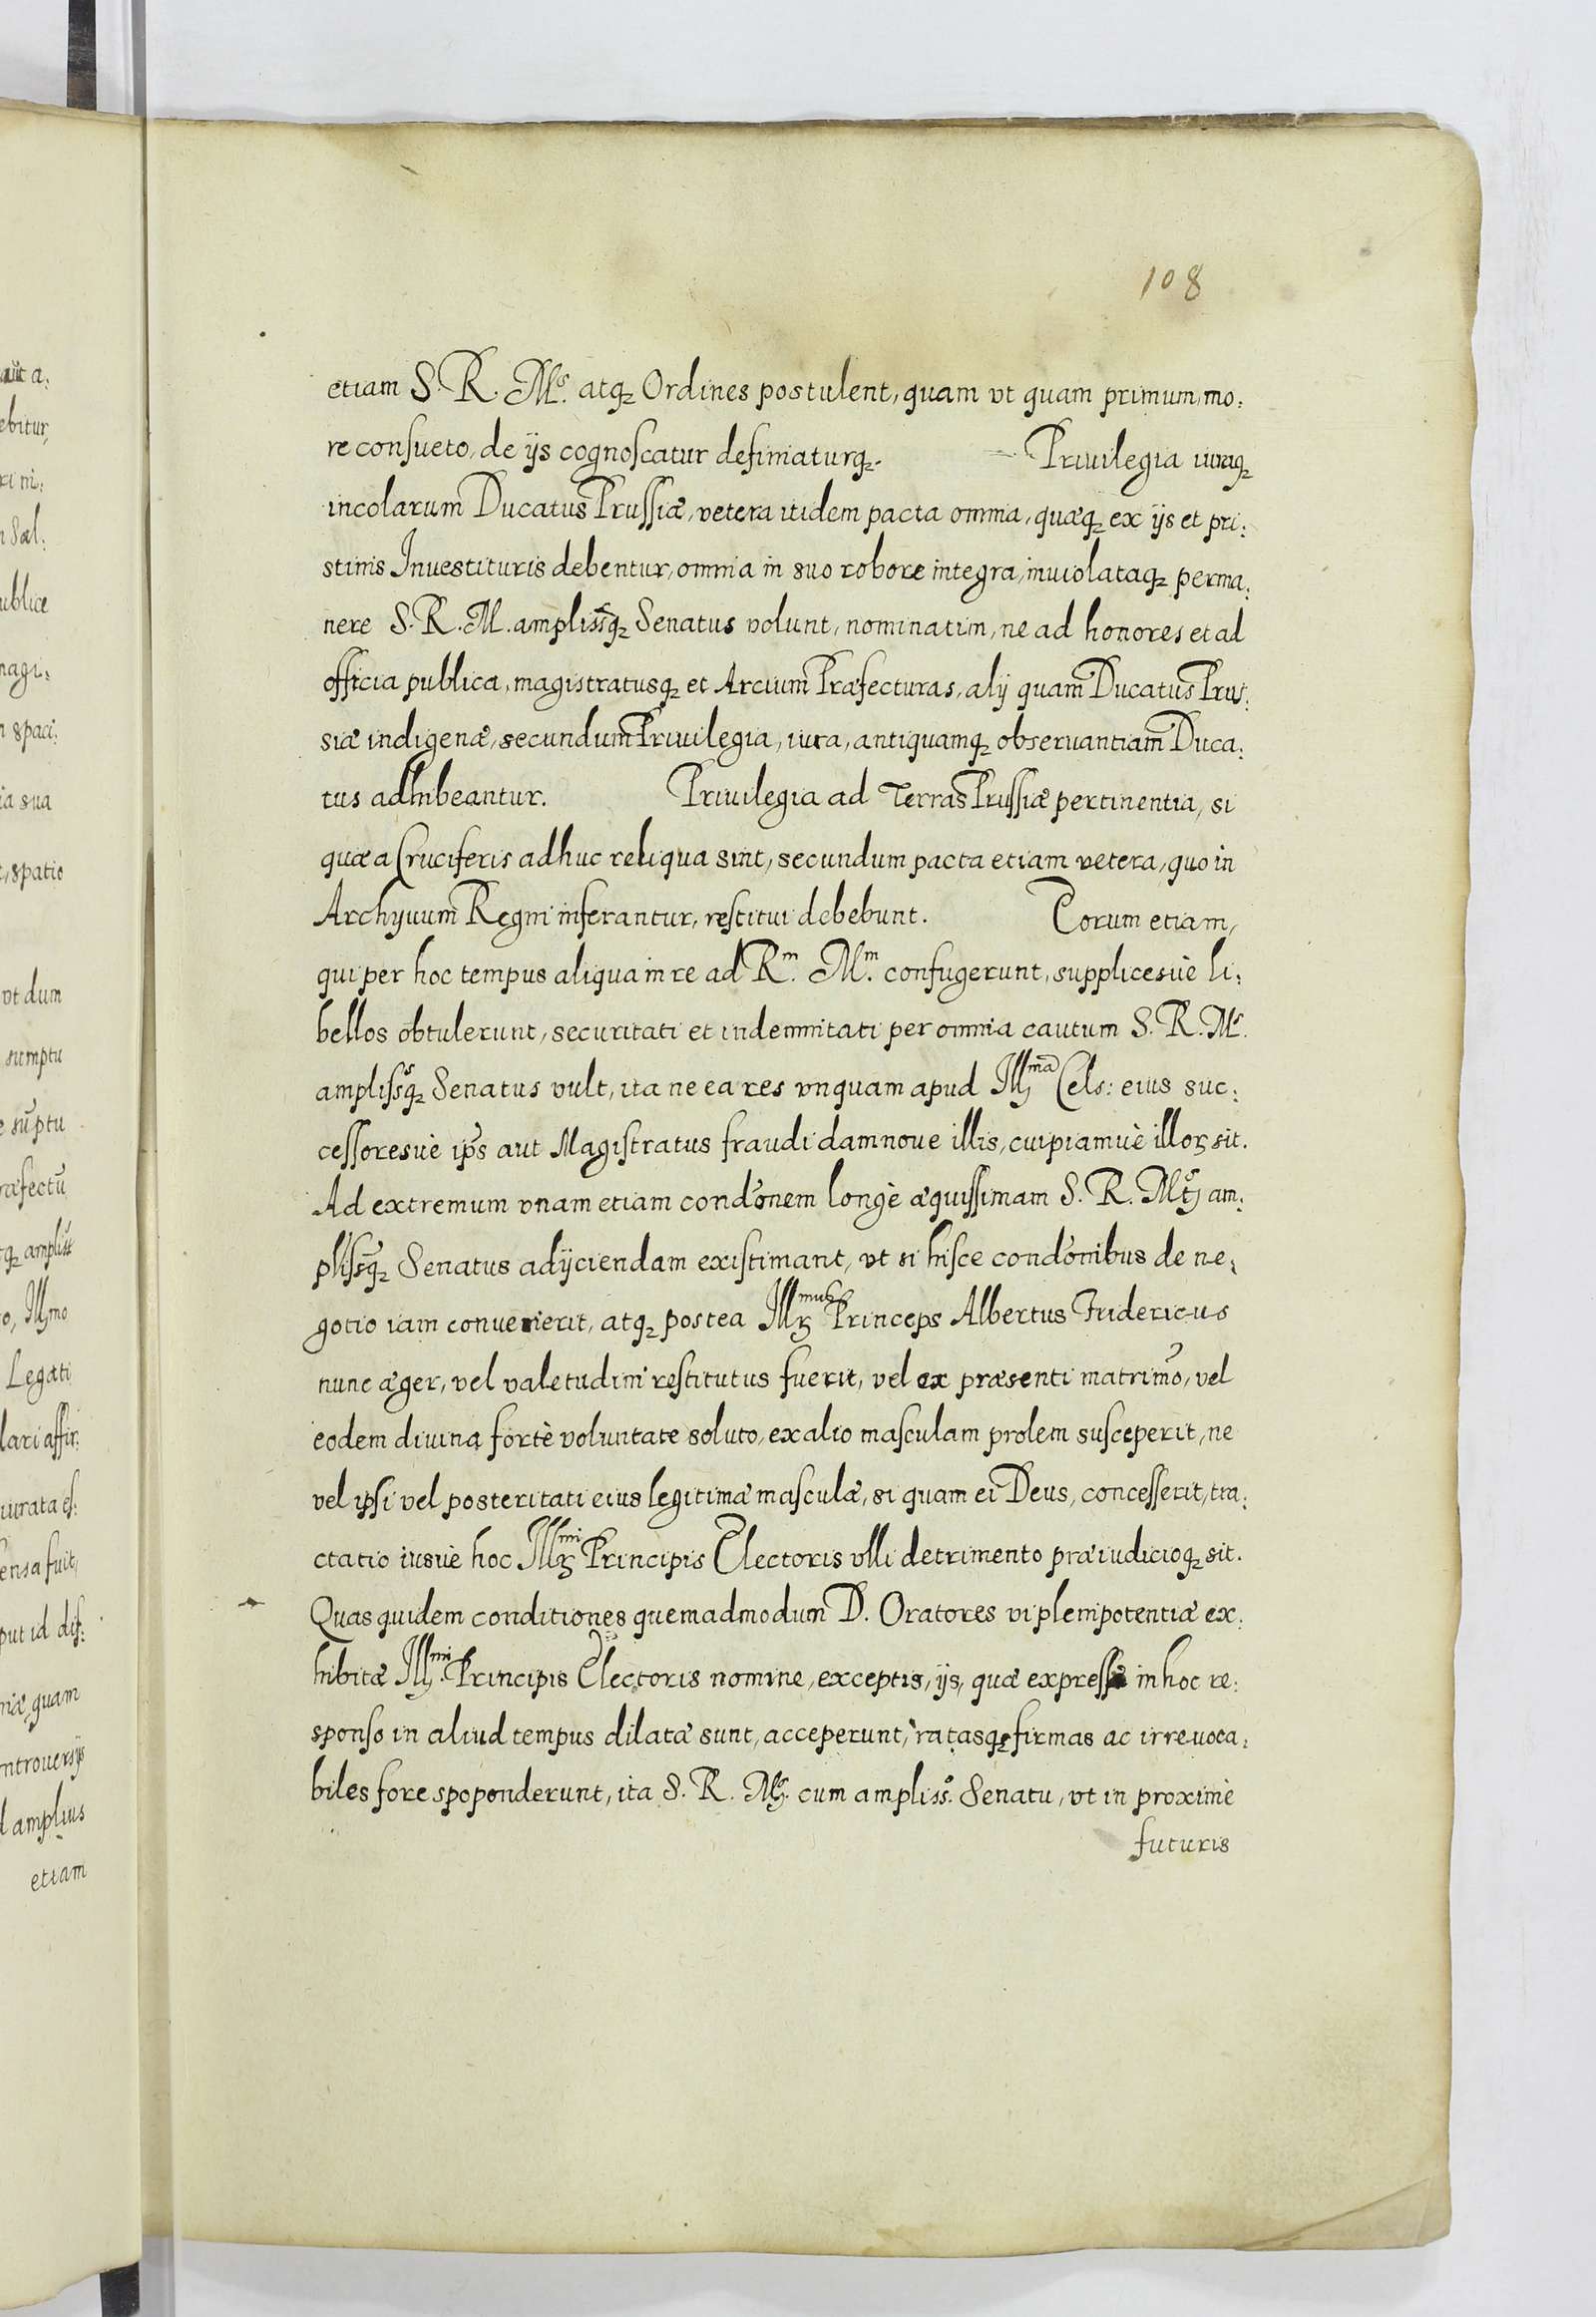 108
etiam S. R. Mˢ. atqꝫ Ordines postulent, quam vt quam primum, mo:
re consueto, de ijs cognoscatur definiaturqꝫ. Priuilegia iuraqꝫ
incolarum Ducatus Prussiæ, vetera itidem pacta omnia, quæqꝫ ex ijs et pri:
stinis Inuestituris debentur, omnia in suo robore integra, inuiolataqꝫ perma:
nere S. R. M. amplissqꝫ Senatus volunt, nominatim, ne ad honores et ad
officia publica, magistratusqꝫ et Arcium Præfecturas, alij quam Ducatus Prus:
siæ indigenæ, secundum Priuilegia, iura, antiquamqꝫ obseruantiam Duca:
tus adhibeantur. Priuilegia ad Terras Prussiæ pertinentia, si
quæ a Cruciferis adhuc reliqua sint, secundum pacta etiam vetera, quo in
Archyuum Regni inferantur, restitui debebunt. Eorum etiam,
qui per hoc tempus aliqua in re ad Rᵐ. Mᵐ. confugerunt, supplicesuè li:
bellos obtulerunt, securitati et indemnitati per omnia cautum S. R. Mˢ.
amplissqꝫ Senatus vult, ita ne ea res vnquam apud Illᵐᵃ Cels: eius suc:
cessoresuè ip̃s aut Magistratus fraudi damnoue illis, cuipiamuè illoꝝ sit.
Ad extremum vnam etiam condõnem longè æquissimam S. R. Mtˢ am:
plissqꝫ Senatus adijciendam existimant, vt si hisce condõnibus de ne:
gotio iam conuenerit, atqꝫ postea Illᵐᵘˢ Princeps Albertus Fridericus
nunc æger, vel valetudini restitutus fuerit, vel ex præsenti matrimõ, vel
eodem diuina fortè voluntate soluto, ex alio masculam prolem susceperit, ne
vel ipsi vel posteritati eius legitimæ masculæ, si quam ei Deus, concesserit, tra:
ctatio iusuè hoc Illᵐⁱ Principis Electoris vlli detrimento præiudicioqꝫ sit.
Quas quidem conditiones quemadmodum D. Oratores vi plenipotentiæ ex:
hibitæ Illᵐⁱ Principis Electoris nomine, exceptis, ijs, quæ expressè in hoc re:
sponso in aliud tempus dilatæ sunt, acceperunt, ratasqꝫ firmas ac irreuoca:
biles fore spoponderunt, ita S. R. Mˢ. cum ampliss. Senatu, vt in proximè
futuris